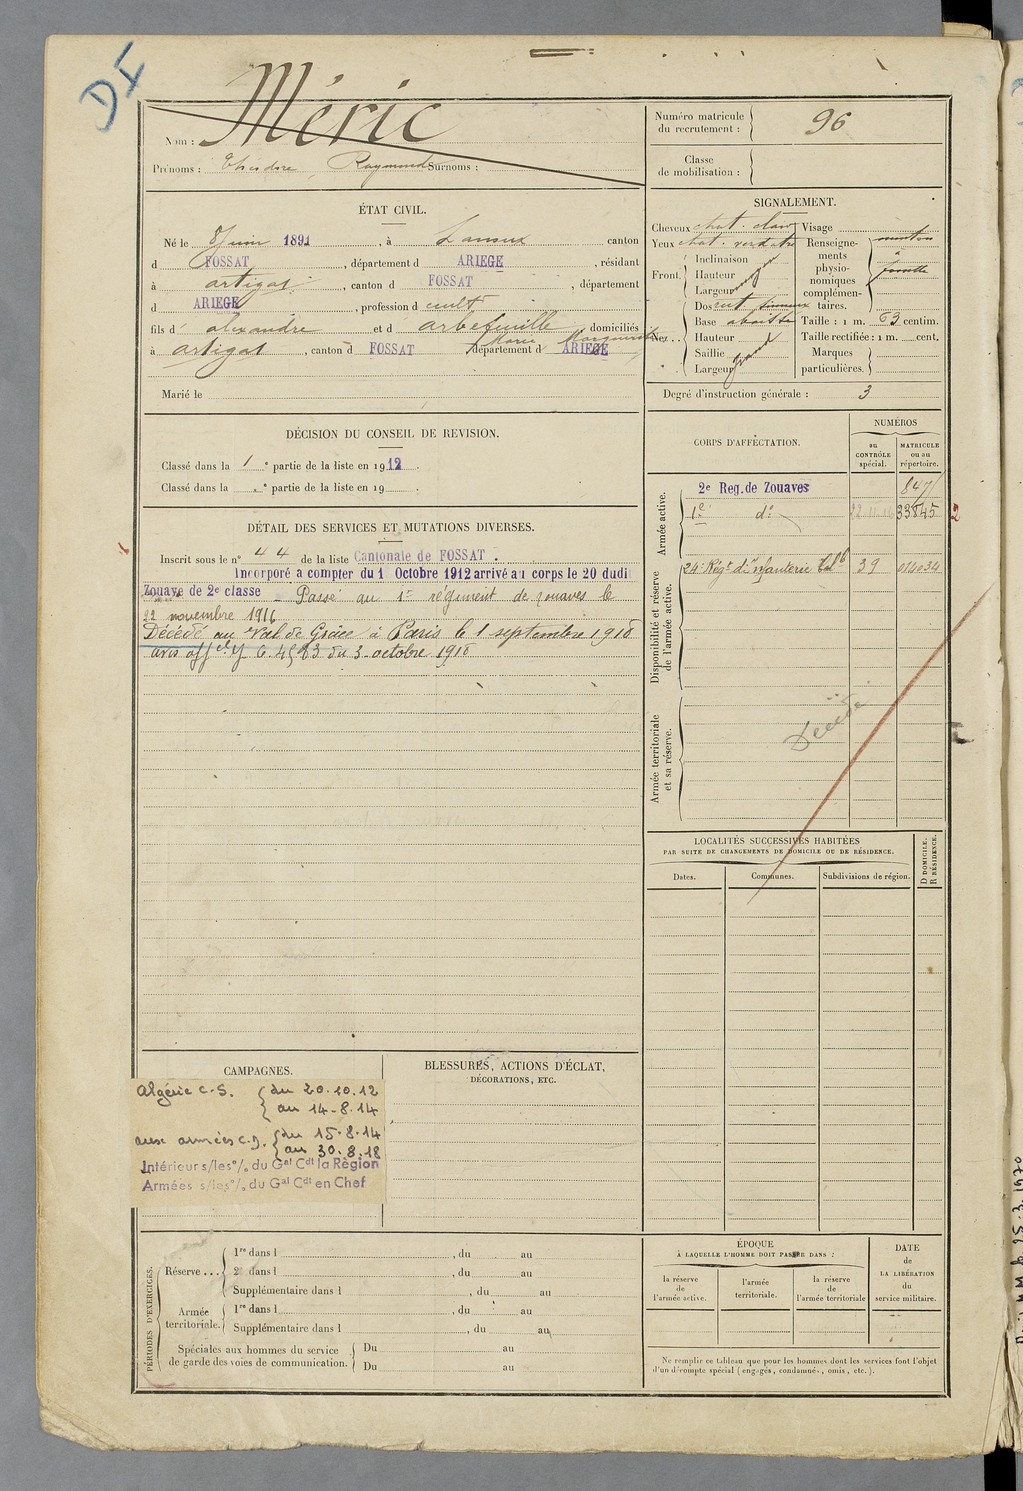 DI
Nom : Méric
Prénoms : Théodore, Raymond Surnoms :
Numéro matricule
du recrutement : 96
Classe
de mobilisation :
ÉTAT CIVIL.
Né le 8 juin 1891, à Lanoux canton
d FOSSAT, département d ARIEGE, résidant
à artigat, canton d FOSSAT, département
d ARIEGE, profession d cult
fils d' alexandre et d arbefeuille, domiciliés
Marie Marguerite
à artigat, canton d FOSSAT département d ARIEGE
Marié le
SIGNALEMENT.
Cheveux chat. clair
Yeux chat. verdatre
Front. Inclinaison
Hauteur
Largeur moy
Nez Dos rect. sinueux
Base abaissée
Hauteur
Saillie
Largeur grand
Visage
Renseignements physionomiques complémentaires. menton à fossette
Taille : 1 m. 63 centim.
Taille rectifiée : 1 m. cent.
Marques
particulières.
Degré d'instruction générale : 3
DÉCISION DU CONSEIL DE REVISION.
Classé dans la 1e partie de la liste en 1912.
Classé dans la e partie de la liste en 19
DÉTAIL DES SERVICES ET MUTATIONS DIVERSES.
Inscrit sous le n° 44 de la liste Cantonale de FOSSAT.
Incorporé a compter du 1 Octobre 1912 arrivé au corps le 20 dudit
Zouave de 2e classe _ Passé au 1er régiment de zouaves le
22 novembre 1916
Décédé au Val de Grâce à Paris le 1 septembre 1918
avis offel 4583 du 3 octobre 1918
CORPS D'AFFECTATION.
NUMÉROS
au
CONTRÔLE
spécial.
MATRICULE
ou au
répertoire.
Armée active.
2e Reg. de Zouaves 847
1e d° 22.11.16 33845 2
Disponibilité et réserve
de l'armée active.
24e Régt d'infanterie Cole 39 014034
Armée territoriale
et sa réserve.
Décédé
LOCALITÉS SUCCESSIVES HABITÉES
PAR SUITE DE CHANGEMENTS DE DOMICILE OU DE RÉSIDENCE.
D DOMICILE.
R RÉSIDENCE.
Dates. Communes. Subdivisions de région.
CAMPAGNES.
Algérie C.S. du 20.10.12
au 14-8.14
aux armées C.D. du 15.8.14
au 30.8.18
Intérieur s/les °/o du Gal Cdt la Région
Armées s/les °/o du Gal Cdt en Chef
BLESSURES, ACTIONS D'ÉCLAT,
DÉCORATIONS, ETC.
PÉRIODES D'EXERCICES.
Réserve...
1re dans l , du au
2e dans l , du au
Supplémentaire dans l , du au
Armée
territoriale.
1re dans l , du au
Supplémentaire dans l , du au
Spéciales aux hommes du service
de garde des voies de communication.
Du au
Du au
ÉPOQUE
À LAQUELLE L'HOMME DOIT PASSER DANS :
la réserve
de
l'armée active.
l'armée
territoriale.
la réserve
de
l'armée territoriale
DATE
de
LA LIBÉRATION
du
service militaire.
Ne remplir ce tableau que pour les hommes dont les services font l'objet
d'un décompte spécial (engagés, condamnés, omis, etc.).